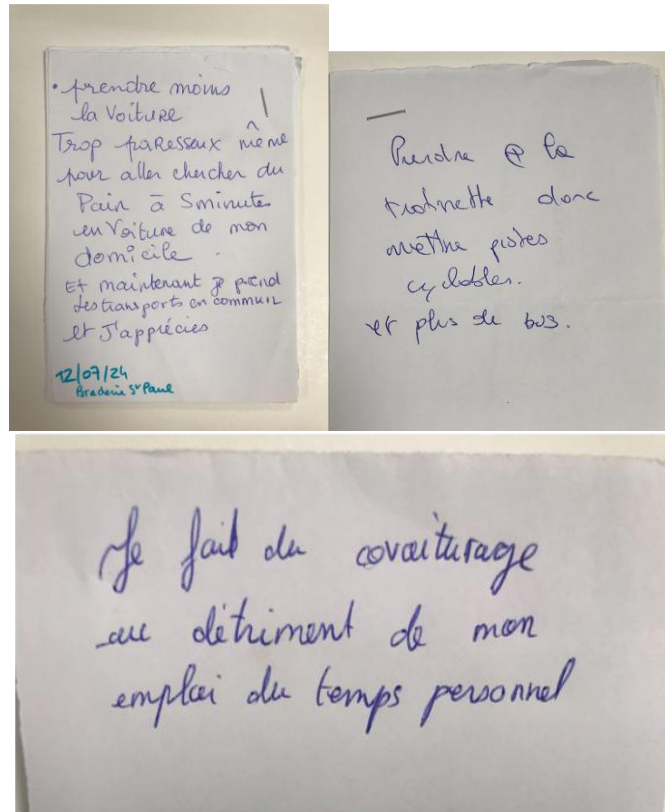 • prendre moins
la Voiture
Trop paresseux même
pour aller chercher du
Pain à 5 minutes
en Voiture de mon
domicile.
Et maintenant je prend
les transports en commun
et J'apprécies
12/07/24
Braderie St Paul
Prendre la
trotinette donc
mettre pistes
cyclables.
et plus de bus.
Je fait du covoiturage
au détriment de mon
emploi du temps personnel